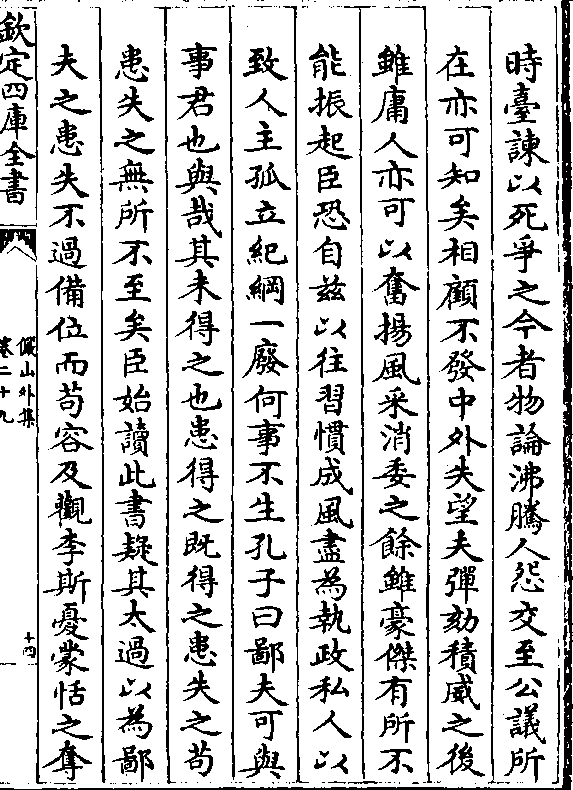 時臺諫以死爭之今者物論沸騰人怨交至公議所
在亦可知矣相顧不發中外失望夫彈劾積威之後
雖庸人亦可以奮揚風采消委之餘雖豪傑有所不
能振起臣恐自茲以往習慣成風盡為執政私人以
致人主孤立紀綱一廢何事不生孔子曰鄙夫可與
事君也與哉其未得之也患得之既得之患失之苟
患失之無所不至矣臣始讀此書疑其太過以為鄙
夫之患失不過備位而苟容及觀李斯憂蒙恬之奪
欽定四庫全書
儼山外集
卷二十九
十四